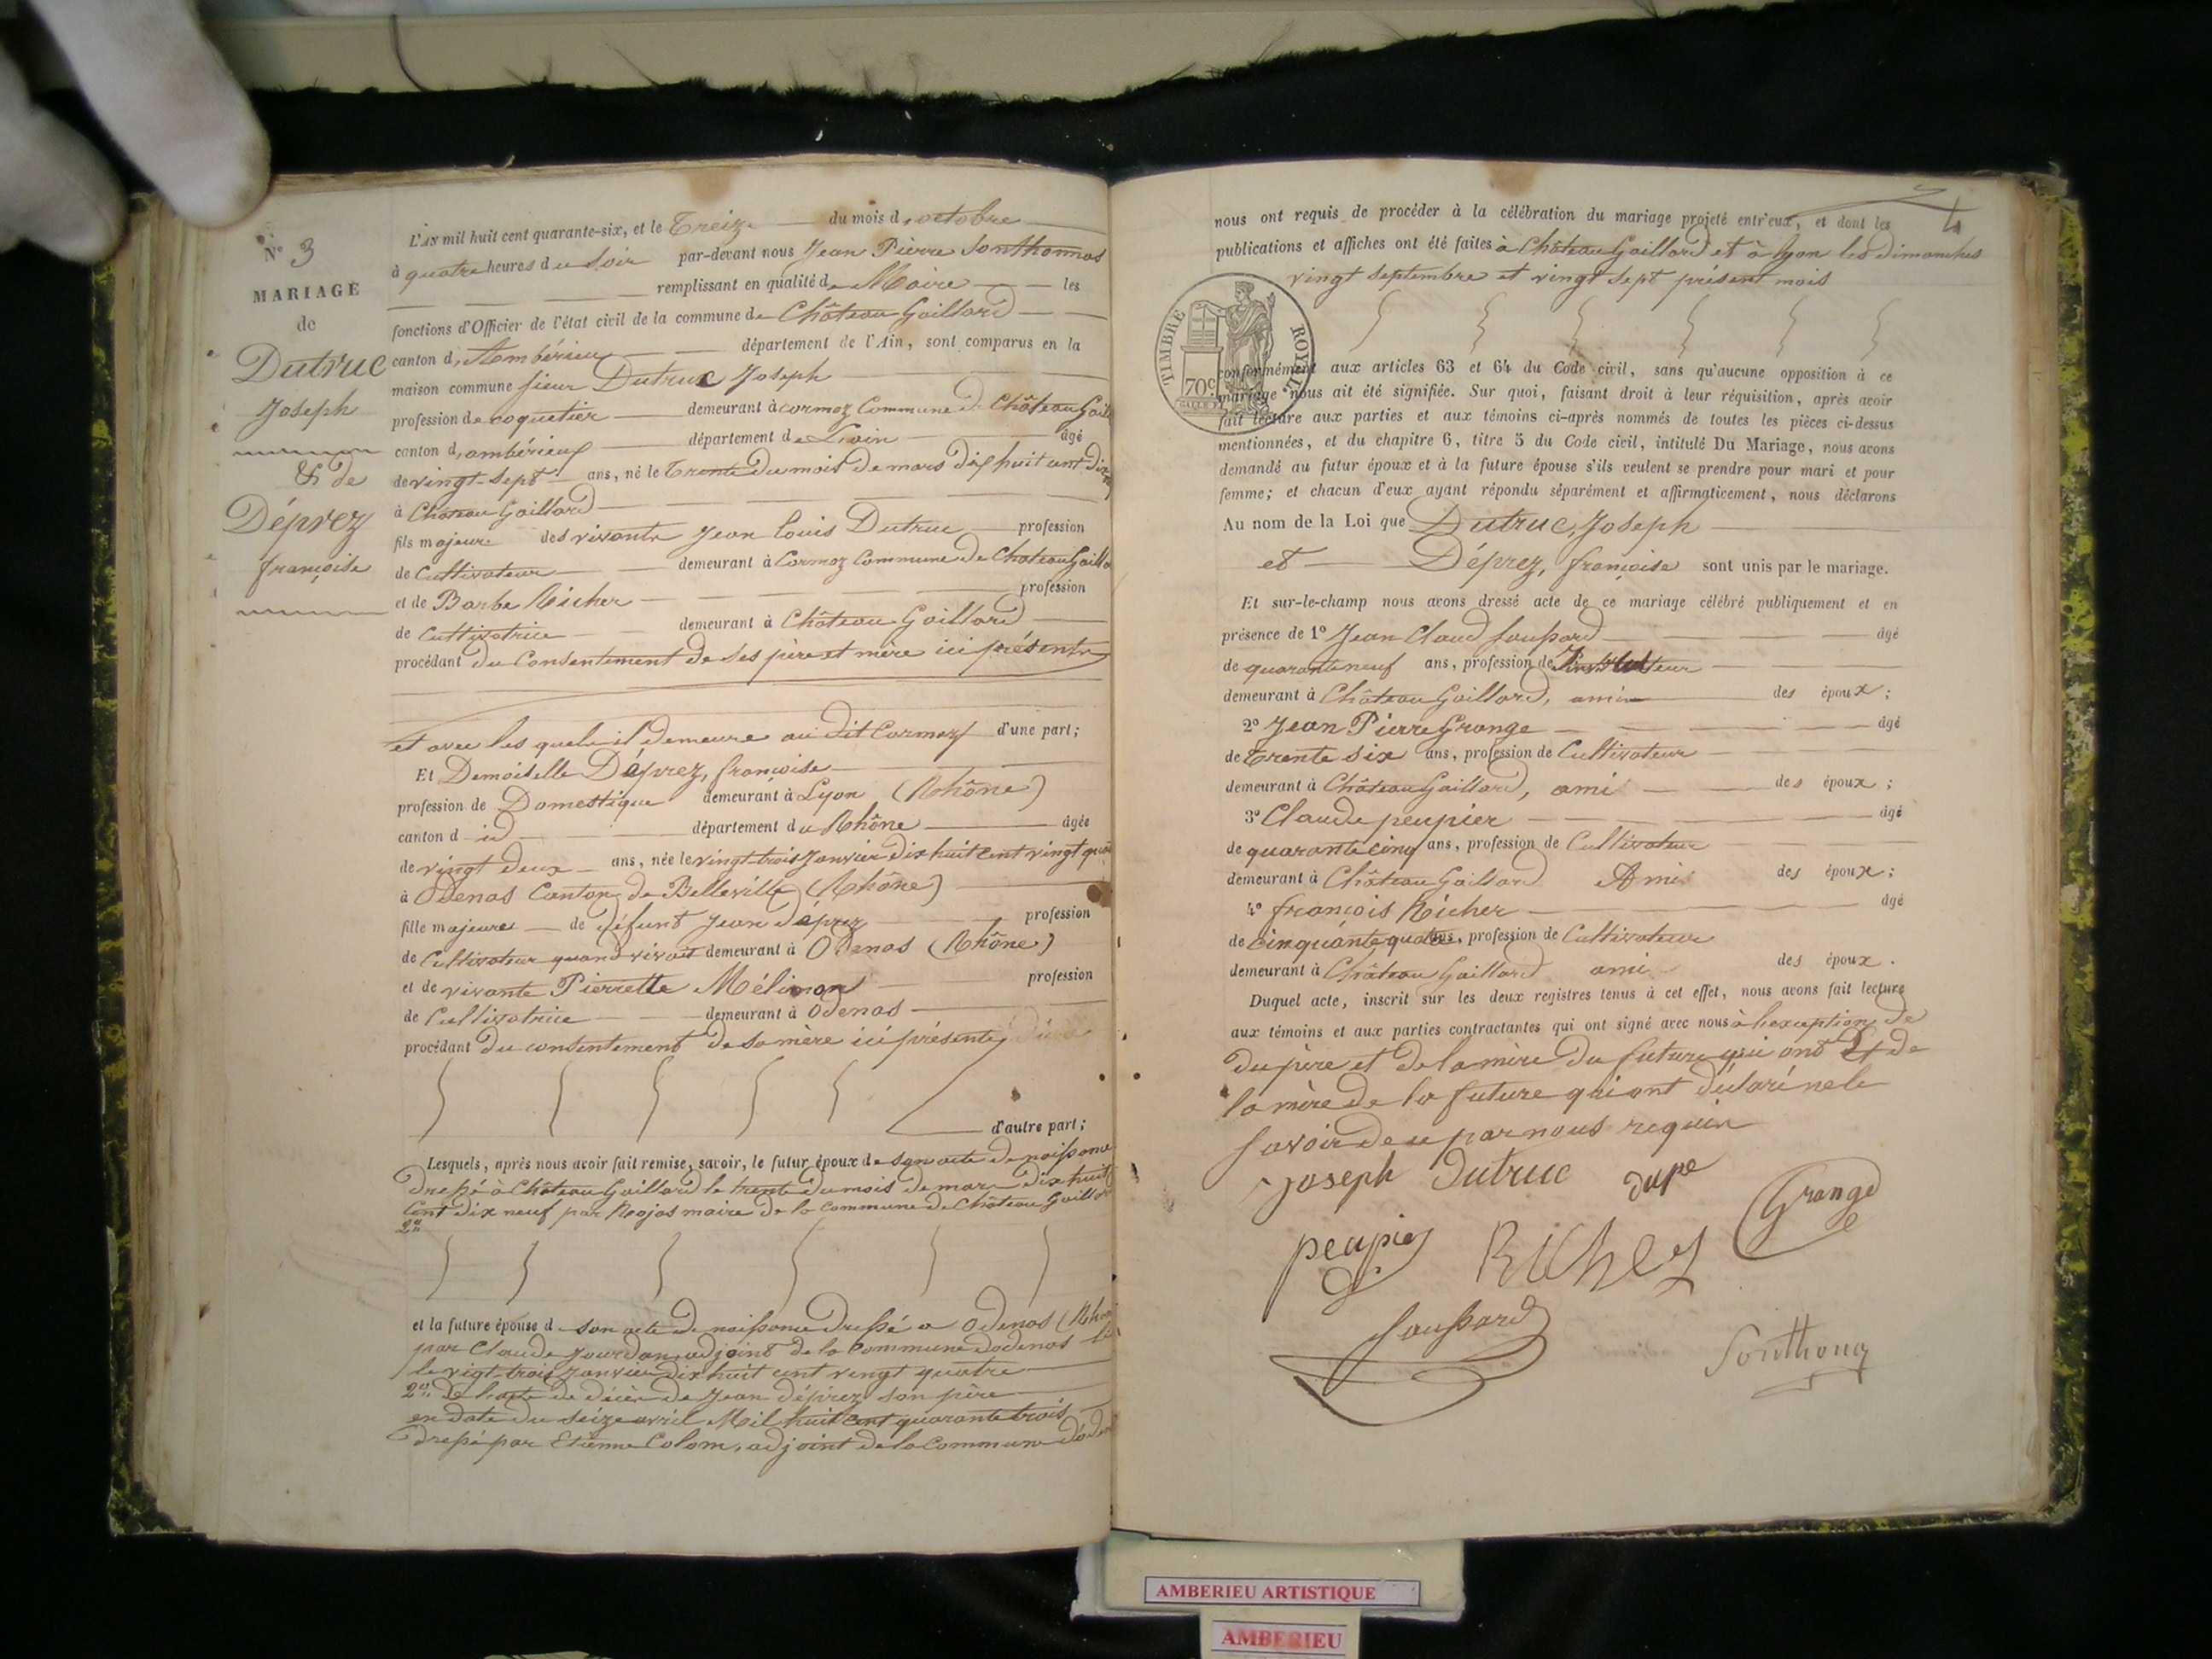 N° 3
MARIAGE
de
Dutruc
Joseph
& de
Déprez
françoise
L'AN mil huit cent quarante-six, et le Treize du mois d'octobre
à quatre heures du soir par-devant nous Jean Pierre Sonthonnas
remplissant en qualité de Maire les
fonctions d'Officier de l'état civil de la commune de Château Gaillard
canton d'Ambérieu département de l'Ain, sont comparus en la
maison commune sieur Dutruc Joseph
profession de coquetier demeurant à cormoz Commune de Château Gaill
canton d'ambérieux département de L'ain âgé
de vingt-sept ans, né le Trente du mois de mars dix huit cent dix
à Château Gaillard
fils majeur des vivants Jean Louis Dutruc profession
de Cultivateur demeurant à Cormoz Commune de Chateau Gailla
et de Barbe Richer profession
de Cultivatrice demeurant à Château Gaillard
procédant du Consentement de ses père et mère ici présents
et avec les quels il demeure au dit Cormoz d'une part;
Et Demoiselle Déprez, françoise
profession de Domestique demeurant à Lyon (Rhône)
canton d id département du Rhône âgée
de vingt deux ans, née le vingt-trois Janvier dix huit cent vingt qua
à Odenas Canton de Belleville (Rhône)
fille majeure de défunt Jean Déprez profession
de Cultivateur quand vivait demeurant à Odenas (Rhône)
et de vivante Pierrette Mélinon profession
de Cultivatrice demeurant à Odenas
procédant du consentement de sa mère ici présente
d'autre part;
Lesquels, après nous avoir fait remise, savoir, le futur époux de son acte de naissance
dressé à Château Gaillard le trente du mois de mars dix huit
Cent dix neuf par Rojas maire de la commune de Château Gaillar
2°
et la future épouse de son acte de naissance dressé a Odenas (Rhô
par Claude Jourdan adjoint de la Commune dodenas le
le vigt-trois Janvier dix huit cent vingt quatre
2° de l'acte de décès de Jean déprez son père
en date du seize avril Mil huit cent quarante trois
dressé par Etienne Colom, adjoint de la Commune d'oden
4
nous ont requis de procéder à la célébration du mariage projeté entr'eux, et dont les
publications et affiches ont été faites à Château Gaillard et à Lyon les dimanches
vingt septembre et vingt sept présent mois
TIMBRE ROYAL
70c
conformément aux articles 63 et 64 du Code civil, sans qu'aucune opposition à ce
mariage nous ait été signifiée. Sur quoi, faisant droit à leur réquisition, après avoir
fait lecture aux parties et aux témoins ci-après nommés de toutes les pièces ci-dessus
mentionnées, et du chapitre 6, titre 5 du Code civil, intitulé Du Mariage, nous avons
demandé au futur époux et à la future épouse s'ils veulent se prendre pour mari et pour
femme; et chacun d'eux ayant répondu séparément et affirmativement, nous déclarons
Au nom de la Loi que Dutruc, Joseph
et Déprez, françoise sont unis par le mariage.
Et sur-le-champ nous avons dressé acte de ce mariage célébré publiquement et en
présence de 1° Jean Claud Joussard âgé
de quarante neuf ans, profession de Instituteur
demeurant à Château Gaillard, ami des époux;
2° Jean Pierre Grange âgé
de Trente six ans, profession de Cultivateur
demeurant à Château Gaillard, ami des époux;
3° Claude peupier âgé
de quarante cinq ans, profession de Cultivateur
demeurant à Château Gaillard Ami des époux;
4° françois Richer âgé
de cinquante quatre ans, profession de Cultivateur
demeurant à Château Gaillard ami des époux.
Duquel acte, inscrit sur les deux registres tenus à cet effet, nous avons fait lecture
aux témoins et aux parties contractantes qui ont signé avec nous à l'exception de
du père et de la mère du future qui ont & de
la mère de la future qui ont déclaré ne le
savoir de ce par nous requis
Joseph Dutruc Grange
peupier Richer
Joussard Sonthona
AMBERIEU ARTISTIQUE
AMBERIEU